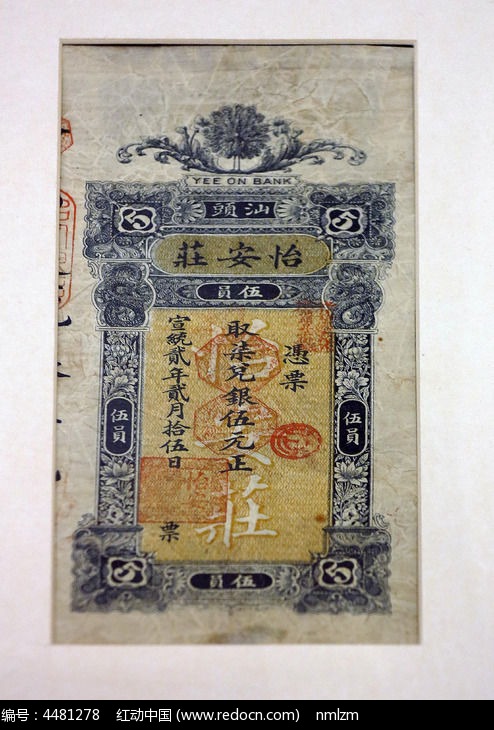 YEE ON BANK
汕頭
怡安莊
伍員
憑票
取柒兌銀伍元正
宣統貳年貳月拾伍日
票
伍員
伍員
伍員
编号：4481278 红动中国 (www.redocn.com) nmlzm